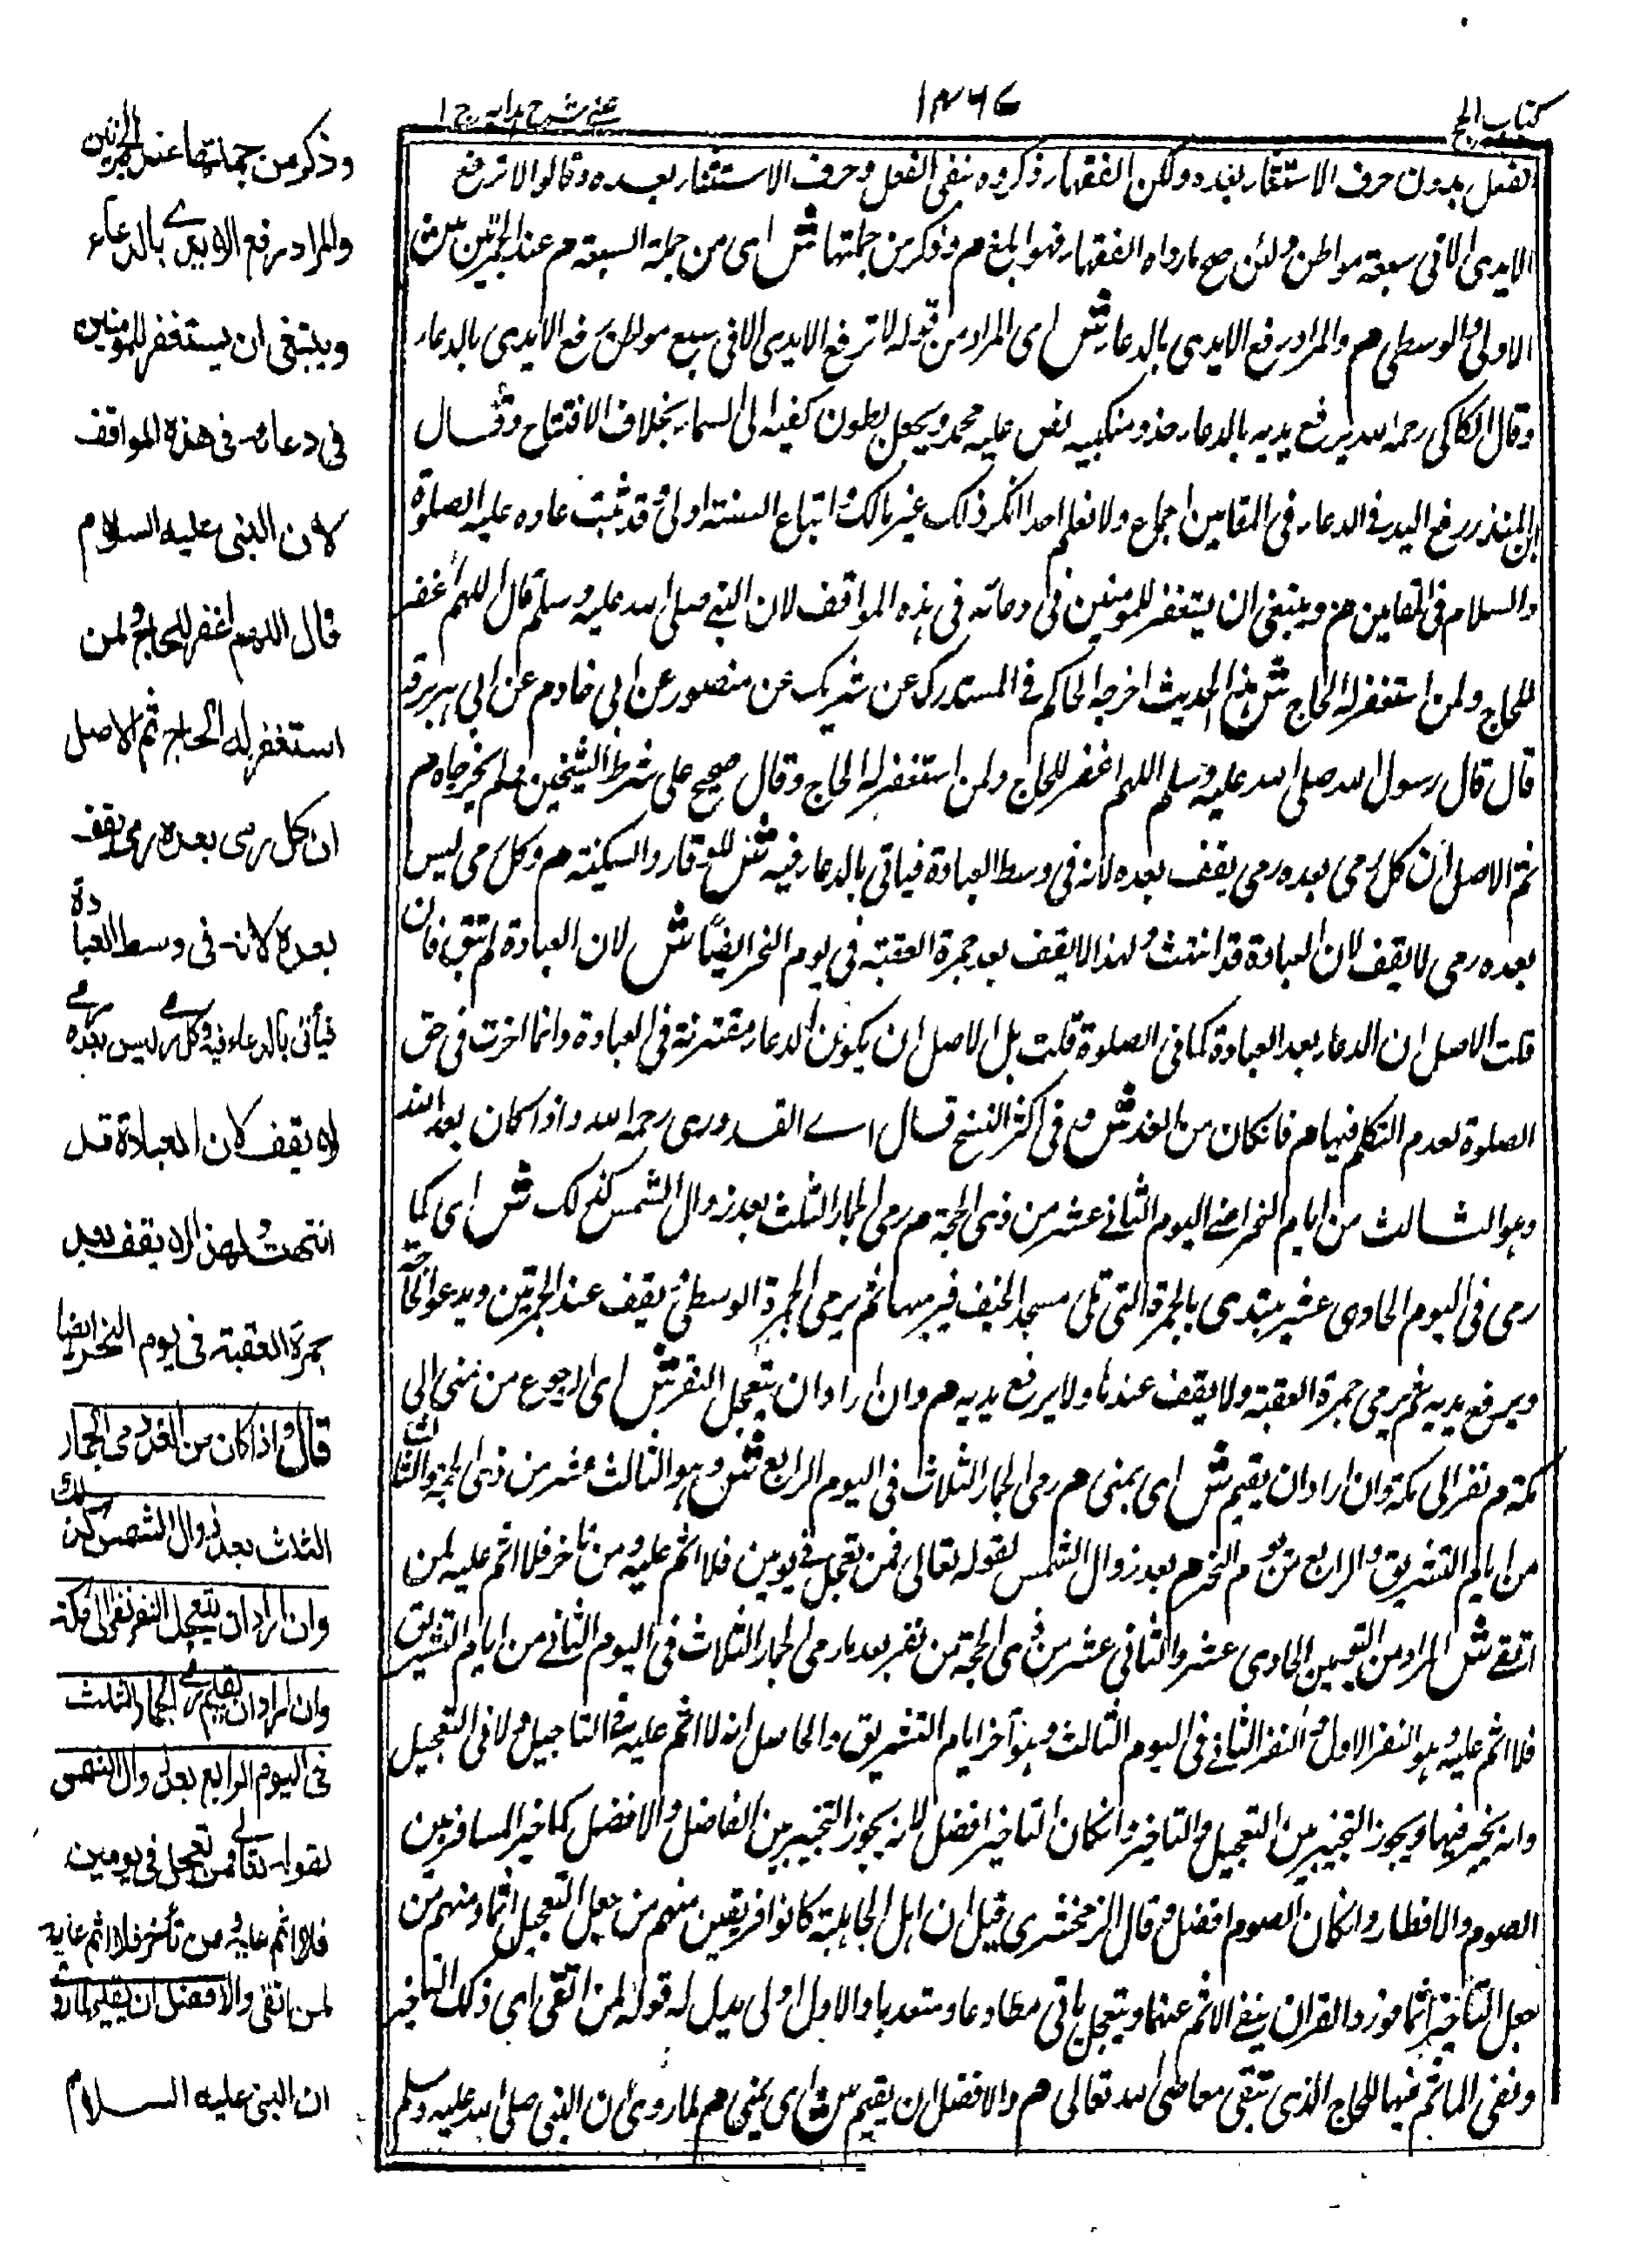 كتاب الحج
١٣٦٧
عینی شرح ہدایہ ج ١
الفعل بدون حرف الاستثناء بعده ولكن الفقهاء ذكروه بنفى الفعل وحرف الاستثناء بعده وقالوا لا ترفع
الايدى الا فى سبعة مواطن ولئن صح ما رواه الفقهاء فهو ابلغ م وذكر من جملتها ش اى من جملة السبعة م عند الجمرتين ش
الاولى والوسطى م والمراد رفع الايدى بالدعاء ش اى المراد من قوله لا ترفع الايدى الا فى سبع مواطن رفع الايدى بالدعاء
وقال الكاكى رحمه الله يرفع يديه بالدعاء حذو منكبيه نص عليه محمد ويجعل بطون كفيه الى السماء بخلاف الافتتاح وقال
ابن المنذر رفع اليد فى الدعاء فى المقامين اجماع ولا نعلم احدا انكر ذلك غير مالك واتباع السنة اولى وقد ثبت دعاوه عليه الصلوة
والسلام فى المقامين م وينبغى ان يستغفر للمومنين فى دعائه فى هذه المواقف لان النبى صلى الله عليه وسلم قال اللهم اغفر
للحاج ولمن استغفر له الحاج ش هذا الحديث اخرجه الحاكم فى المستدرك عن شريك عن منصور عن ابى حازم عن ابى هريرة
قال قال رسول الله صلى الله عليه وسلم اللهم اغفر للحاج ولمن استغفر له الحاج وقال صحيح على شرط الشيخين ولم يخرجاه م
ثم الاصل ان كل رمى بعده رمى يقف بعده لانه فى وسط العبادة فياتى بالدعاء فيه ش للوقار والسكينة م وكل رمى ليس
بعده رمى لا يقف لان العبادة قد انتهت ولهذا لا يقف بعد جمرة العقبة فى يوم النحر ايضا ش لان العبادة لم تبق فان
قلت الاصل ان الدعاء بعد العبادة كما فى الصلوة قلت بل الاصل ان يكون الدعاء مقترنة فى العبادة وانما اخرت فى حق
الصلوة لعدم التكلم فيها م فاذا كان من الغد ش وفى اكثر النسخ قال اے القدورى رحمه الله واذا كان بعد الغد
وهو الثالث من ايام النحر اعنے اليوم الثانى عشر من ذى الحجة م رمى الجمار الثلث بعد زوال الشمس كذلك ش اى كما
رمى فى اليوم الحادى عشر يبتدى بالجمرة التى تلى مسجد الخيف فيرميها ثم يرمى الجمرة الوسطى ثم يقف عند الجمرتين ويدعو الله
ويرفع يديه ثم يرمى جمرة العقبة ولا يقف عندها ولا يرفع يديه م وان اراد ان يتعجل النفر ش اى الرجوع من منى الى
مكة م نفر الى مكة وان اراد ان يقيم ش اى بمنى م رمى الجمار الثلاث فى اليوم الرابع ش وهو الثالث عشر من ذى الحجة والثالث
من ايام التشريق والرابع من يوم النحر م بعد زوال الشمس لقوله تعالى فمن تعجل فى يومين فلا اثم عليه ومن تاخر فلا اثم عليه لمن
اتقے ش المراد من اليومين الحادى عشر والثانى عشر من ذى الحجة من نفر بعد ما رمى الجمار الثلاث فى اليوم الثانے من ايام التشريق
فلا اثم عليه وهو النفر الاول والنفر الثانے فى اليوم الثالث وهو آخر ايام التشريق والحاصل انه لا اثم عليه فى التاجيل ولا فى التعجيل
وانه يخير فيهما ويجوز التخيير بين التعجيل والتاخير وان كان التاخير افضل لانه يجوز التخيير بين الفاضل والافضل كما خير المسافر بين
الصوم والافطار وان كان الصوم افضل وقال الزمخشرى قيل ان اهل الجاهلية كانوا فريقين منهم من جعل التعجيل اثما ومنهم من
جعل التاخير اثما فورد القران بنفى الاثم عنهما ويتعجل ياتى مطاوعا ومتعديا والاول اولى يدل له قوله لمن اتقى اى ذلك التاخير
ونفى الماثم فيها للحاج الذى يتقى معاصى الله تعالى م والافضل ان يقيم ش اى بمنى م لما روى ان النبى صلى الله عليه وسلم
وذكر من جملتها عند الجمرتين
والمراد رفع الايدى بالدعاء
وينبغى ان يستغفر للمومنين
فى دعائه فى هذه المواقف
لان النبى عليه السلام
قال اللهم اغفر للحاج ولمن
استغفر له الحاج ثم الاصل
ان كل رمى بعده رمى يقف
بعده لانه فى وسط العبادة
فيأتى بالدعاء فيه وكل رمى ليس بعده رمى
لا يقف لان العبادة قد
انتهت ولهذا لا يقف بعد
جمرة العقبة فى يوم النحر ايضا
قال واذا كان من الغد رمى الجمار
الثلث بعد زوال الشمس كذلك
وان اراد ان يتعجل النفر نفر الى مكة
وان اراد ان يقيم رمى الجمار الثلث
فى اليوم الرابع بعد زوال الشمس
لقوله تعالى فمن تعجل فى يومين
فلا اثم عليه ومن تأخر فلا اثم عليه
لمن اتقى والافضل ان يقيم لما روى
ان النبى عليه السلام